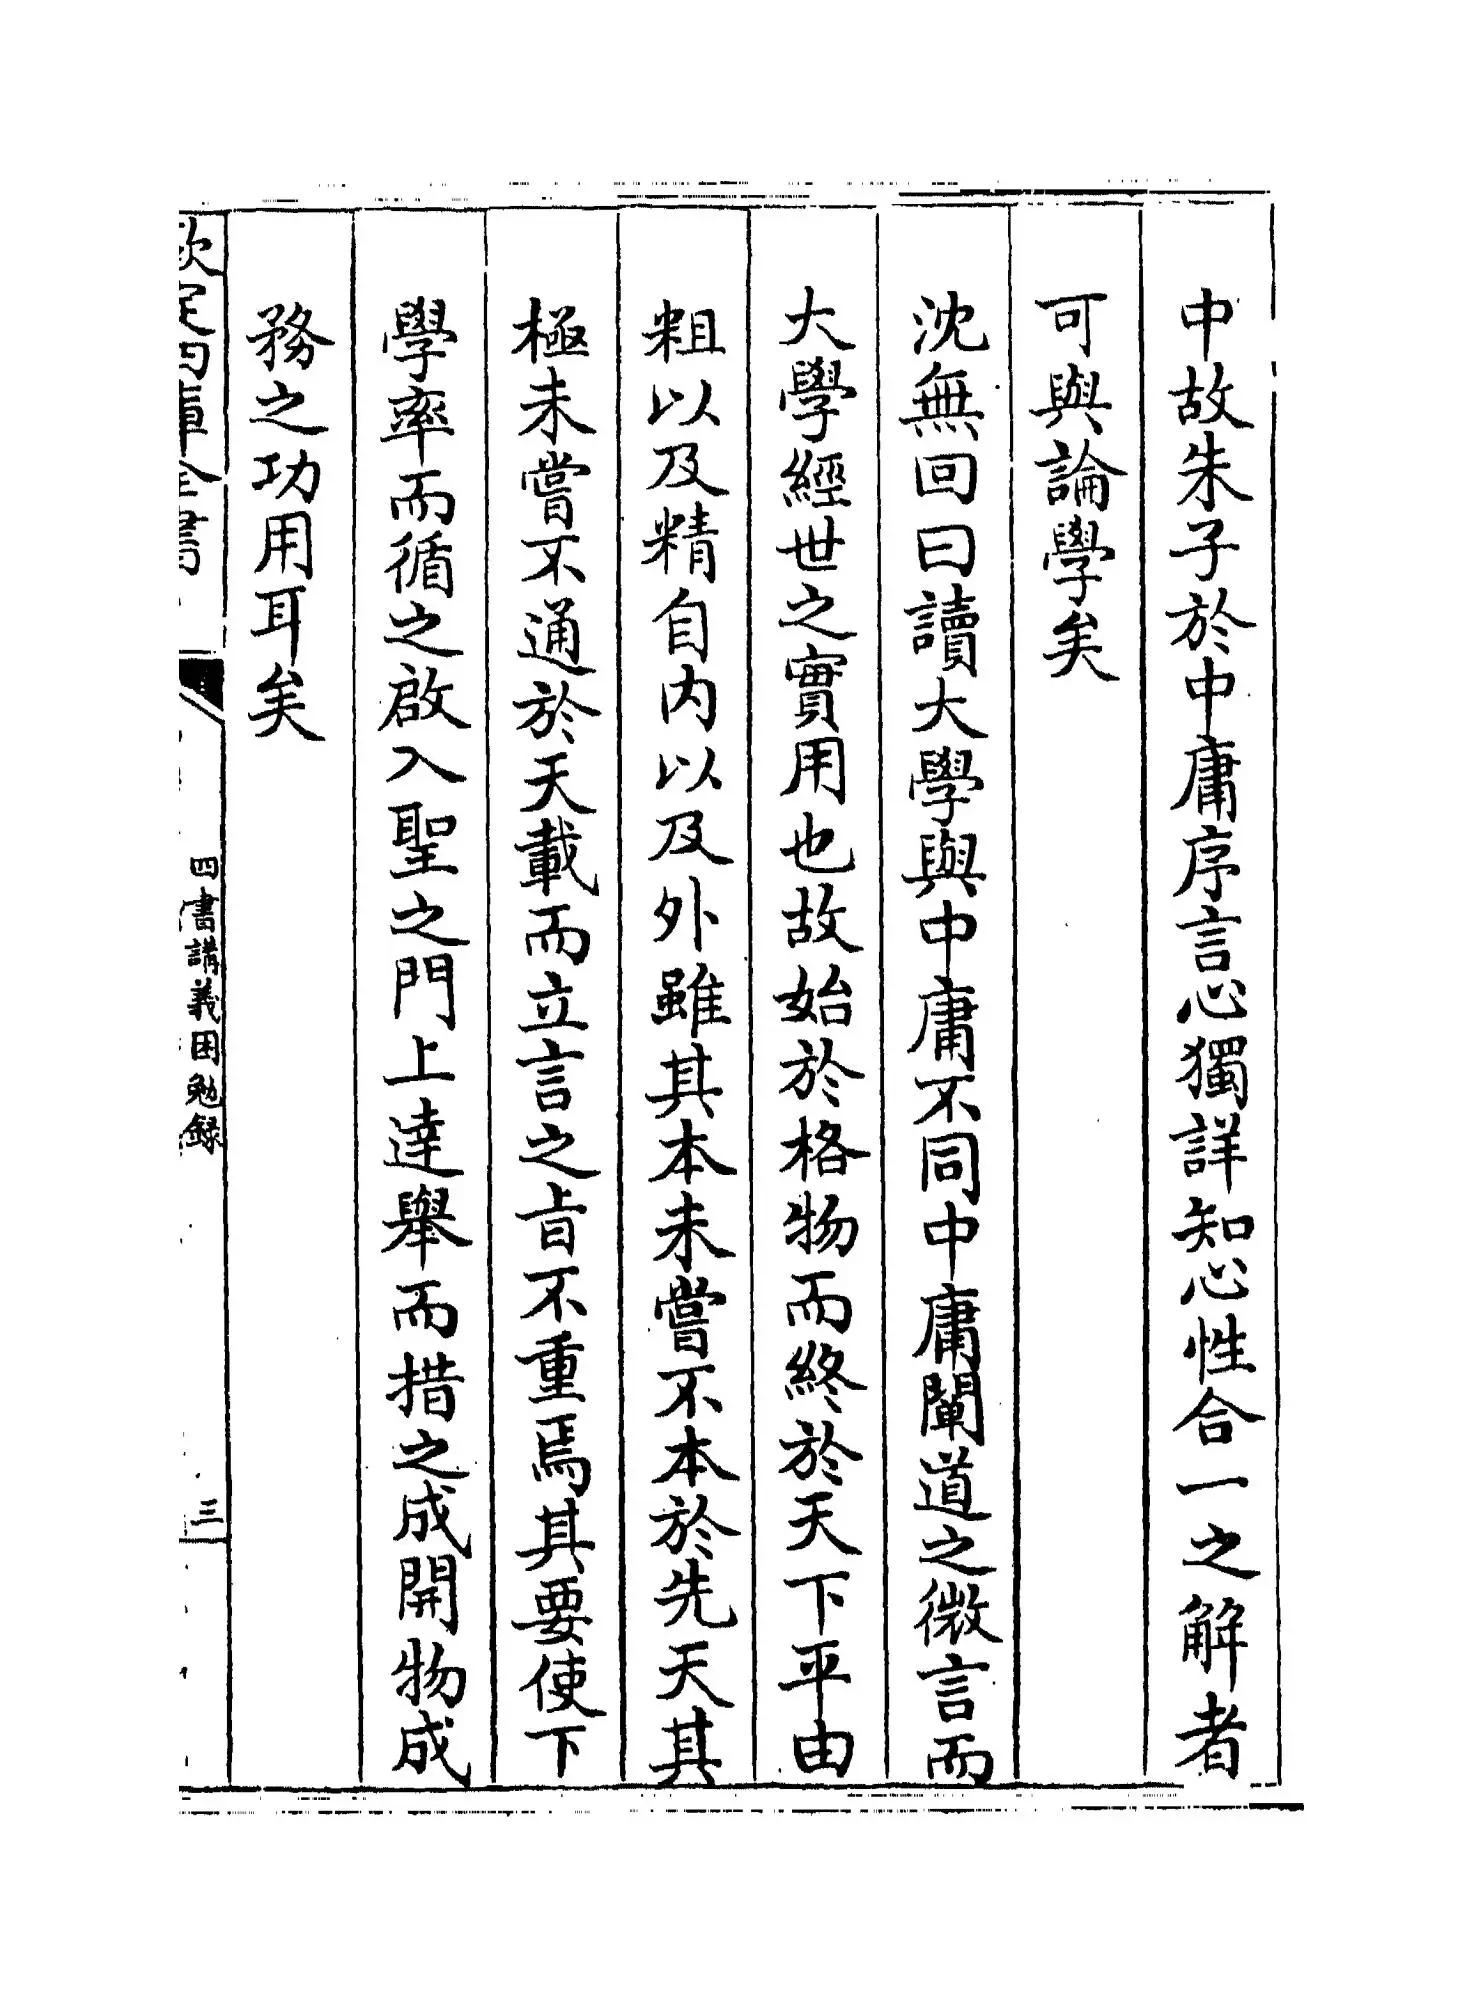 中故朱子於中庸序言心獨詳知心性合一之解者
可與論學矣
沈無回曰讀大學與中庸不同中庸闡道之微言而
大學經世之實用也故始於格物而終於天下平由
粗以及精自内以及外雖其本未嘗不本於先天其
極未嘗不通於天載而立言之㫖不重焉其要使下
學率而循之啟入聖之門上達舉而措之成開物成
務之功用耳矣
欽定四庫全書
四書講義困勉録
三